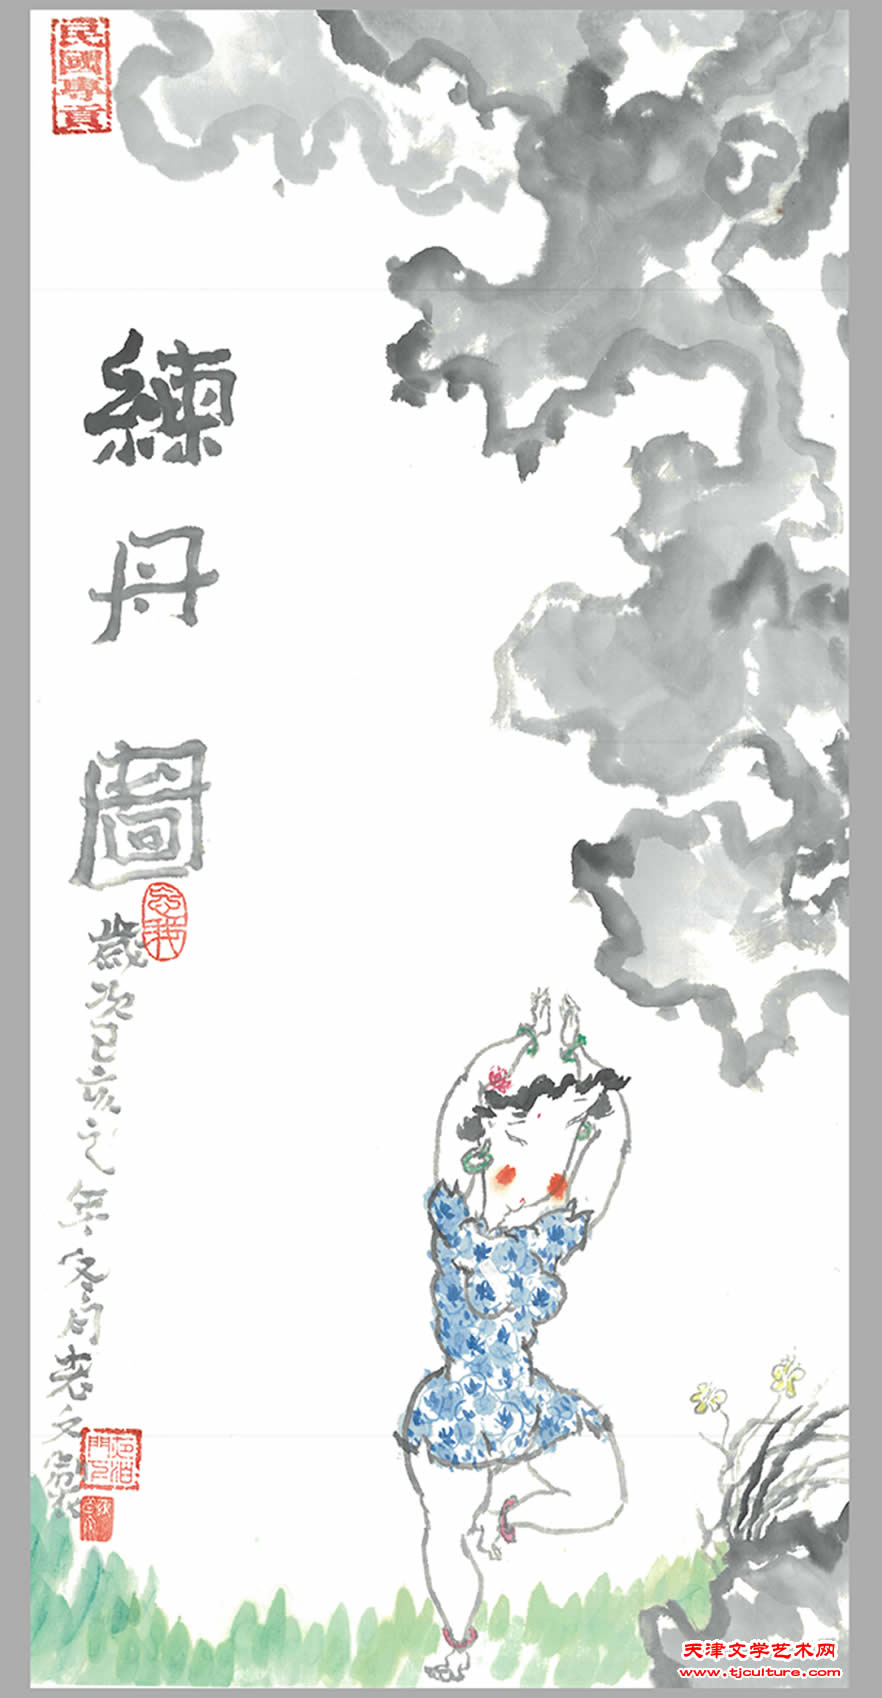 民國專頁
練丹圖
忘我
歲次己亥之年冬月老文
天津文学艺术网
www.tjculture.com